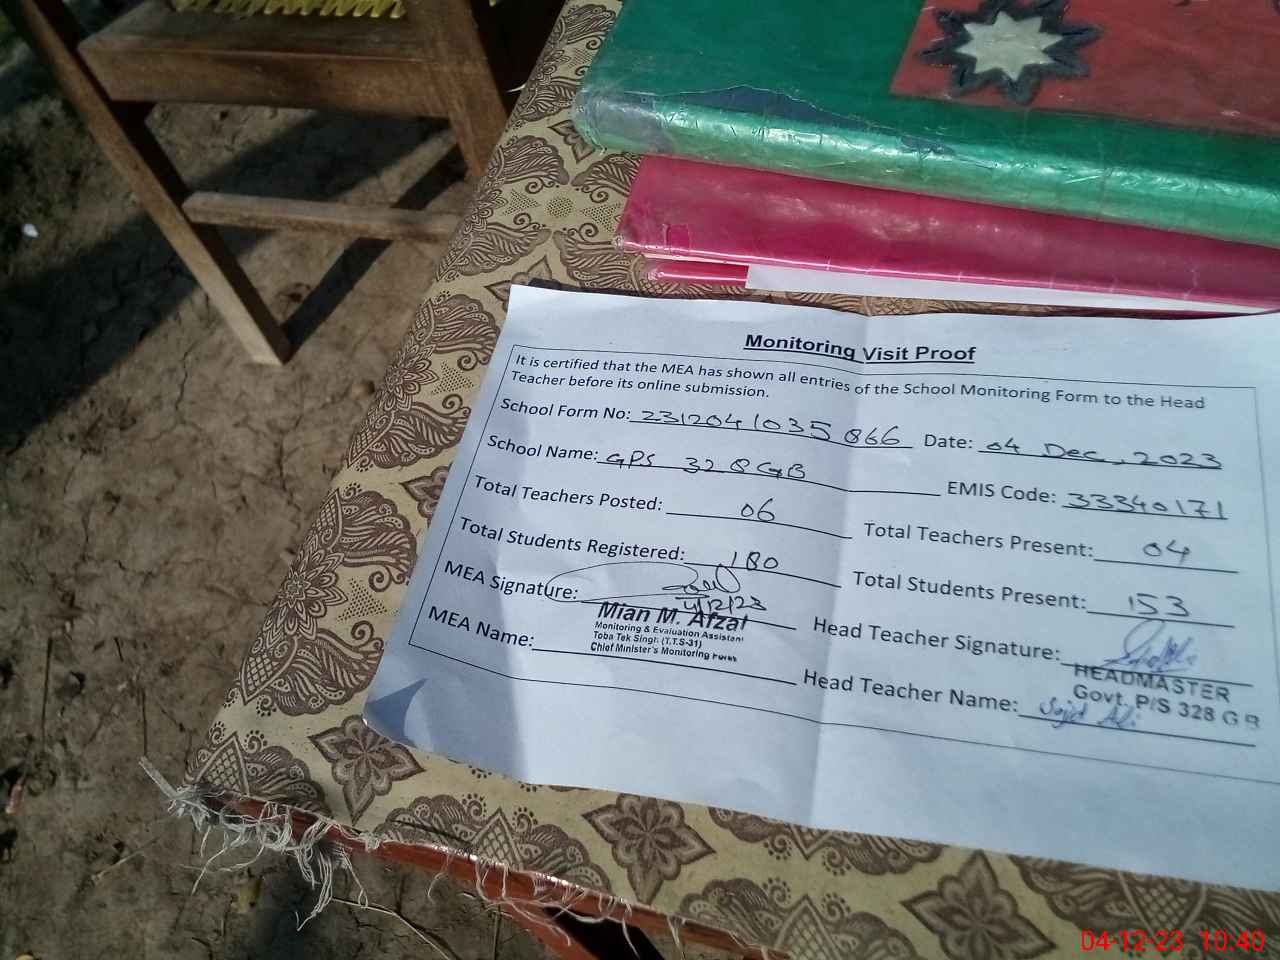 Monitoring Visit Proof
It is certified that the MEA has shown all entries of the School Monitoring Form to the Head
Teacher before its online submission.
School Form No: 2312041035866 Date: 04 Dec, 2023
School Name: GPS 328GB EMIS Code: 33340171
Total Teachers Posted: 06 Total Teachers Present: 04
Total Students Registered: 180 Total Students Present: 153
MEA Signature: 4/12/23 Head Teacher Signature:
Mian M. Afzal
Monitoring & Evaluation Assistant
Toba Tek Singh (T.T.S-31)
Chief Minister's Monitoring Force
HEADMASTER
Govt. P/S 328 GB
MEA Name: Head Teacher Name: Sajid Ali
04-12-23 10:40